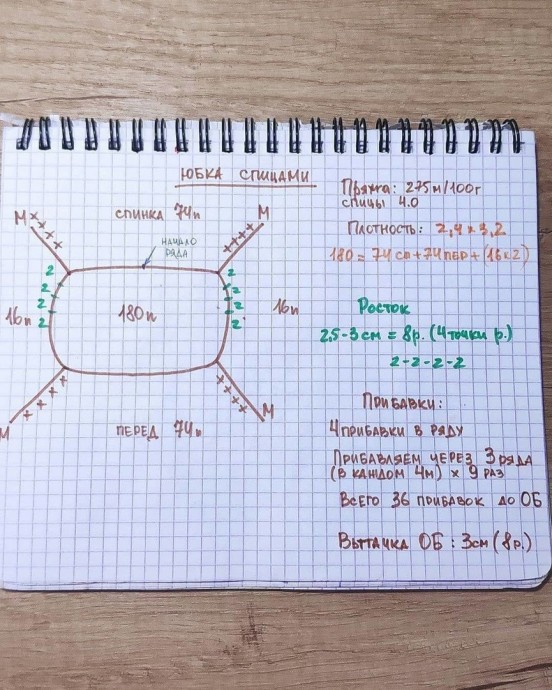 ЮБКА СПИЦАМИ
М
СПИНКА 74п
М
НАЧАЛО
РЯДА
2
2
2
2
16п
180п
2
2
2
2
16п
М
ПЕРЕД 74п
М
ПРЯЖА: 275м/100г
СПИЦЫ 4.0
ПЛОТНОСТЬ: 2,4 x 3,2
180 = 74сп + 74ПЕР + (16x2)
РОСТОК
2,5-3см = 8р. (4 точки р.)
2-2-2-2
ПРИБАВКИ:
4 ПРИБАВКИ В РЯДУ
ПРИБАВЛЯЕМ ЧЕРЕЗ 3 РЯДА
(В КАЖДОМ 4м) x 9 РАЗ
ВСЕГО 36 ПРИБАВОК ДО ОБ
ВЫТАЧКА ОБ: 3см (8р.)